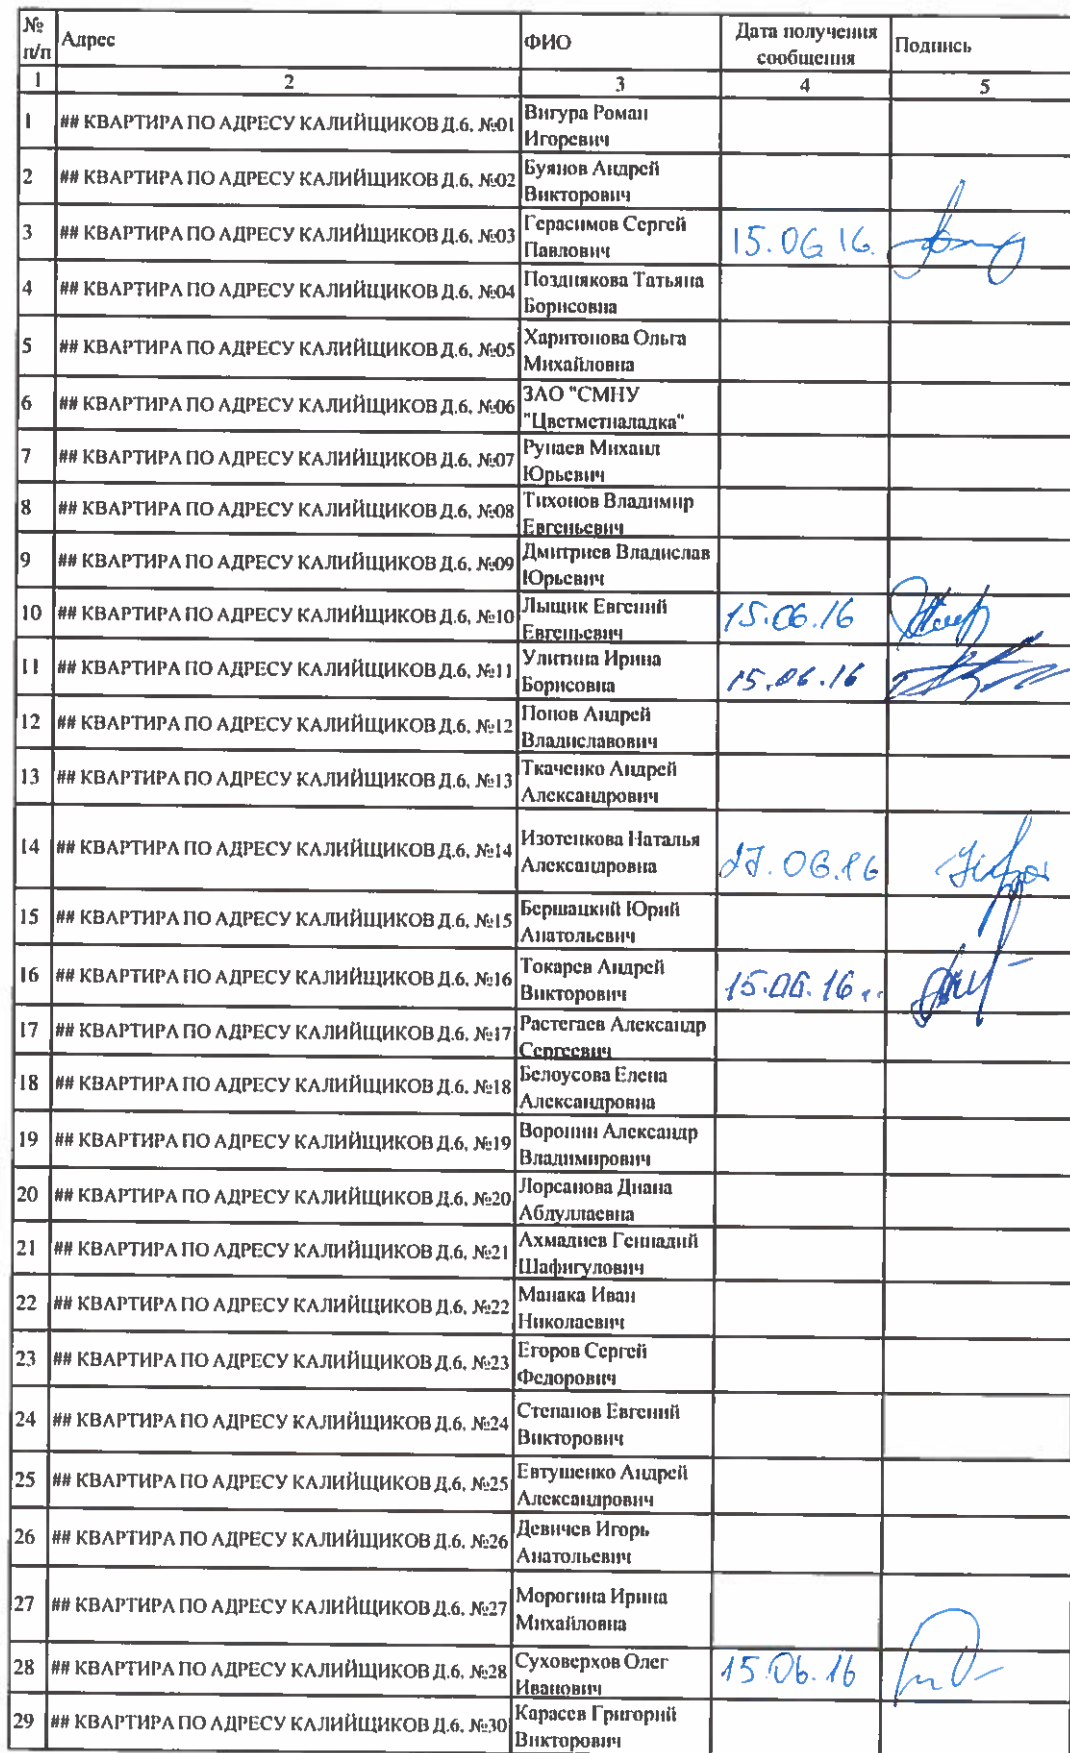 № п/п Адрес ФИО Дата получения сообщения Подпись
1 2 3 4 5
1 ## КВАРТИРА ПО АДРЕСУ КАЛИЙЩИКОВ Д.6, №01 Вигура Роман Игоревич
2 ## КВАРТИРА ПО АДРЕСУ КАЛИЙЩИКОВ Д.6, №02 Буянов Андрей Викторович
3 ## КВАРТИРА ПО АДРЕСУ КАЛИЙЩИКОВ Д.6, №03 Герасимов Сергей Павлович 15.06 16.
4 ## КВАРТИРА ПО АДРЕСУ КАЛИЙЩИКОВ Д.6, №04 Позднякова Татьяна Борисовна
5 ## КВАРТИРА ПО АДРЕСУ КАЛИЙЩИКОВ Д.6, №05 Харитонова Ольга Михайловна
6 ## КВАРТИРА ПО АДРЕСУ КАЛИЙЩИКОВ Д.6, №06 ЗАО "СМНУ "Цветметналадка"
7 ## КВАРТИРА ПО АДРЕСУ КАЛИЙЩИКОВ Д.6, №07 Рунаев Михаил Юрьевич
8 ## КВАРТИРА ПО АДРЕСУ КАЛИЙЩИКОВ Д.6, №08 Тихонов Владимир Евгеньевич
9 ## КВАРТИРА ПО АДРЕСУ КАЛИЙЩИКОВ Д.6, №09 Дмитриев Владислав Юрьевич
10 ## КВАРТИРА ПО АДРЕСУ КАЛИЙЩИКОВ Д.6, №10 Лыщик Евгений Евгеньевич 15.06.16
11 ## КВАРТИРА ПО АДРЕСУ КАЛИЙЩИКОВ Д.6, №11 Улитина Ирина Борисовна 15.06.16
12 ## КВАРТИРА ПО АДРЕСУ КАЛИЙЩИКОВ Д.6, №12 Попов Андрей Владиславович
13 ## КВАРТИРА ПО АДРЕСУ КАЛИЙЩИКОВ Д.6, №13 Ткаченко Андрей Александрович
14 ## КВАРТИРА ПО АДРЕСУ КАЛИЙЩИКОВ Д.6, №14 Изотенкова Наталья Александровна 27.06.16
15 ## КВАРТИРА ПО АДРЕСУ КАЛИЙЩИКОВ Д.6, №15 Бершацкий Юрий Анатольевич
16 ## КВАРТИРА ПО АДРЕСУ КАЛИЙЩИКОВ Д.6, №16 Токарев Андрей Викторович 15.06.16
17 ## КВАРТИРА ПО АДРЕСУ КАЛИЙЩИКОВ Д.6, №17 Растегаев Александр Сергеевич
18 ## КВАРТИРА ПО АДРЕСУ КАЛИЙЩИКОВ Д.6, №18 Белоусова Елена Александровна
19 ## КВАРТИРА ПО АДРЕСУ КАЛИЙЩИКОВ Д.6, №19 Воронин Александр Владимирович
20 ## КВАРТИРА ПО АДРЕСУ КАЛИЙЩИКОВ Д.6, №20 Лорсанова Диана Абдуллаевна
21 ## КВАРТИРА ПО АДРЕСУ КАЛИЙЩИКОВ Д.6, №21 Ахмадиев Геннадий Шафигулович
22 ## КВАРТИРА ПО АДРЕСУ КАЛИЙЩИКОВ Д.6, №22 Манака Иван Николаевич
23 ## КВАРТИРА ПО АДРЕСУ КАЛИЙЩИКОВ Д.6, №23 Егоров Сергей Федорович
24 ## КВАРТИРА ПО АДРЕСУ КАЛИЙЩИКОВ Д.6, №24 Степанов Евгений Викторович
25 ## КВАРТИРА ПО АДРЕСУ КАЛИЙЩИКОВ Д.6, №25 Евтушенко Андрей Александрович
26 ## КВАРТИРА ПО АДРЕСУ КАЛИЙЩИКОВ Д.6, №26 Девичев Игорь Анатольевич
27 ## КВАРТИРА ПО АДРЕСУ КАЛИЙЩИКОВ Д.6, №27 Морогина Ирина Михайловна
28 ## КВАРТИРА ПО АДРЕСУ КАЛИЙЩИКОВ Д.6, №28 Суховерхов Олег Иванович 15.06.16
29 ## КВАРТИРА ПО АДРЕСУ КАЛИЙЩИКОВ Д.6, №30 Карасев Григорий Викторович